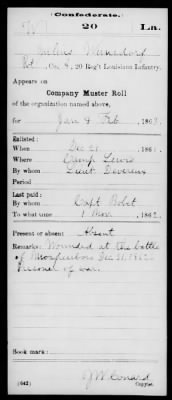 Confederate.
W 20 La.
Pvt, Co. , 20 Reg't Louisiana Infantry.
Appears on
Company Muster Roll
of the organization named above,
for Jan & Feb , 1863.
Enlisted:
When Dec 21 , 186
Where Camp Lewis
By whom Lieut. Devereux
Period
Last paid:
By whom Capt Bobet
To what time 1 Mar , 1862.
Present or absent Absent
Remarks: Wounded at the battle
of Murfreesboro Dec 31, 1862.
Prisoner of war.
Book mark:
(642) Copyist.